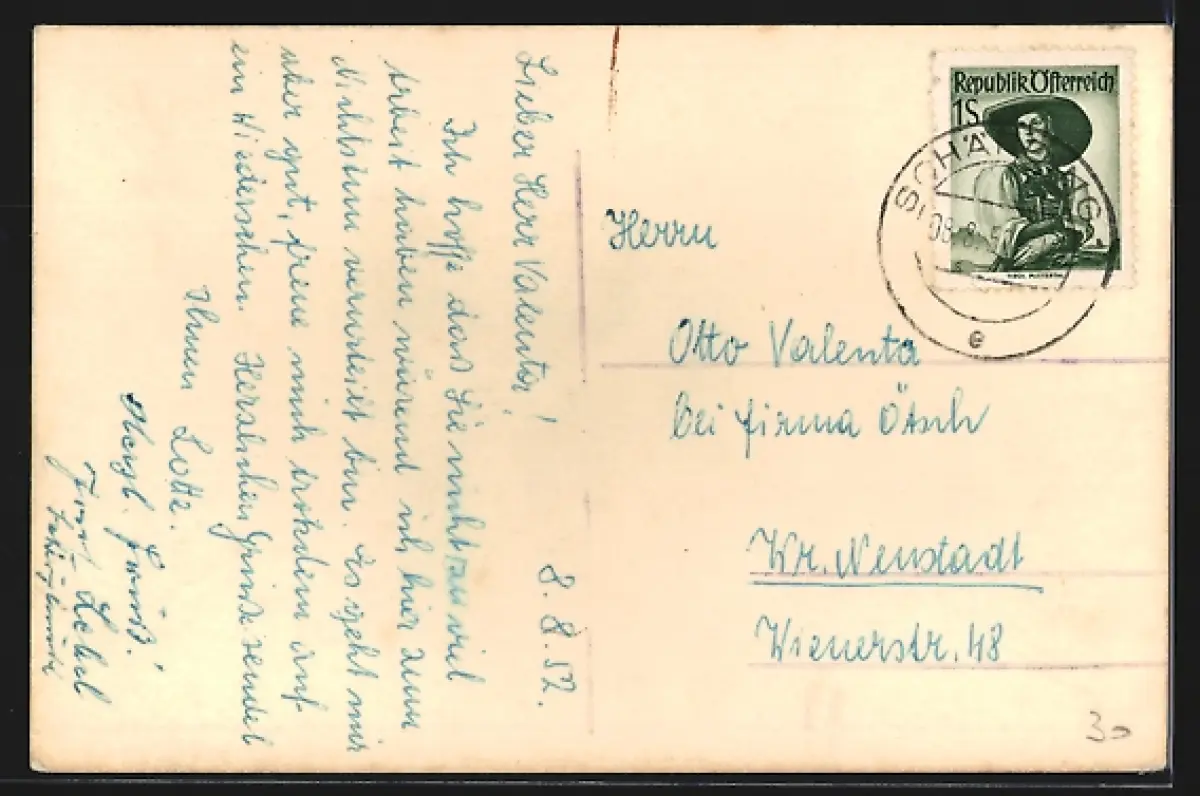 Lieber Herr Valenta!
8. 8. 52.
Ich hoffe das Sie nicht zu viel
Arbeit haben wärend ich hier zum
Nichtstun verurteilt bin. Es geht mir
aber gut, freue mich trotzdem auf
ein Wiedersehen. Herzlichen Gruß sendet
Ihnen Lotte.
Herzl. Gruß!
Republik Österreich
1S
SCHÄ
08. 8. 5
e
Herrn
Otto Valenta
bei Firma Ötsch
Wr. Neustadt
Wienerstr. 48
30